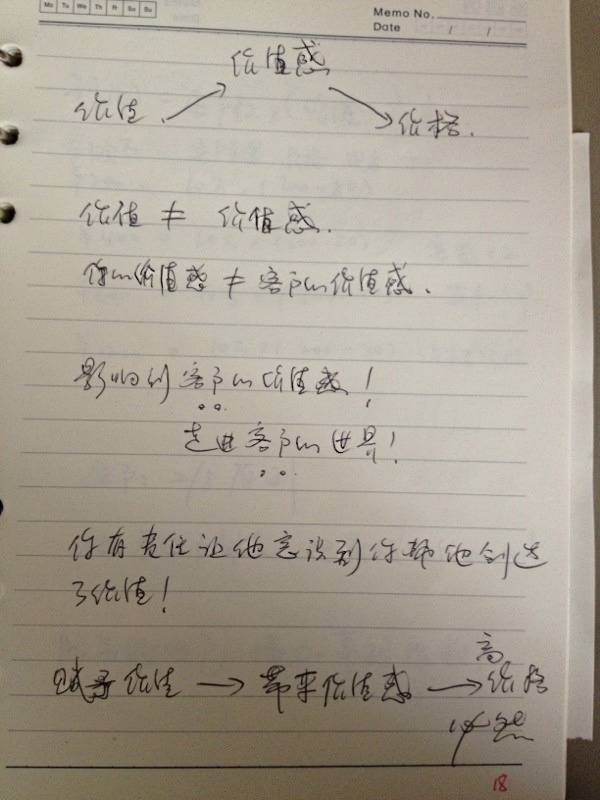 Mo Tu We Th Fr Sa Su
Memo No.
Date / /
价值感
价值 → → 价格.
价值 ≠ 价值感.
你的价值感 ≠ 客户的价值感.
影响到客户的价值感!
走进客户的世界!
你有责任让他意识到你帮他创造
了价值!
高
赋予价值 → 带来价值感 → 价格
必然
18